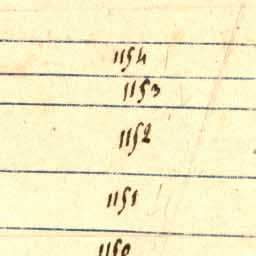 1154
1153
1152
1151
1150